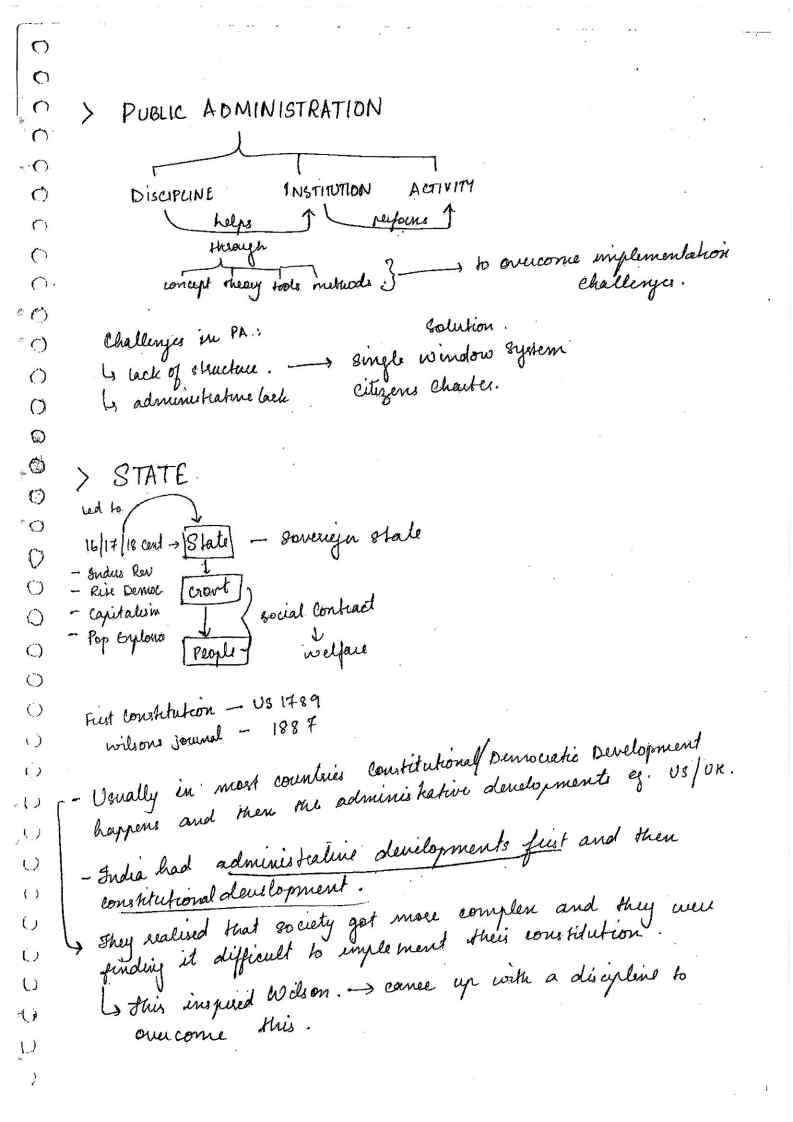 > PUBLIC ADMINISTRATION
DISCIPLINE INSTITUTION ACTIVITY
helps performs
through
concept theory tools methods } → to overcome implementation
challenges.
Challenges in PA.: Solution.
↳ lack of structure. → single window system
↳ administrative lack citizens charter.
> STATE.
Led to
16/17/18 cent → State — sovereign state
- Indus Rev
- Rise Democ Govt
- Capitalism social contract
- Pop Explono ↓
People welfare
First constitution — US 1789
wilsons journal - 1887
- Usually in most countries constitutional/Democratic Development
happens and then the administrative developments eg. US/UK.
- India had administrative developments first and then
constitutional development.
→ They realised that society got more complex and they were
finding it difficult to implement their constitution.
↳ this inspired Wilson. → came up with a discipline to
overcome this.